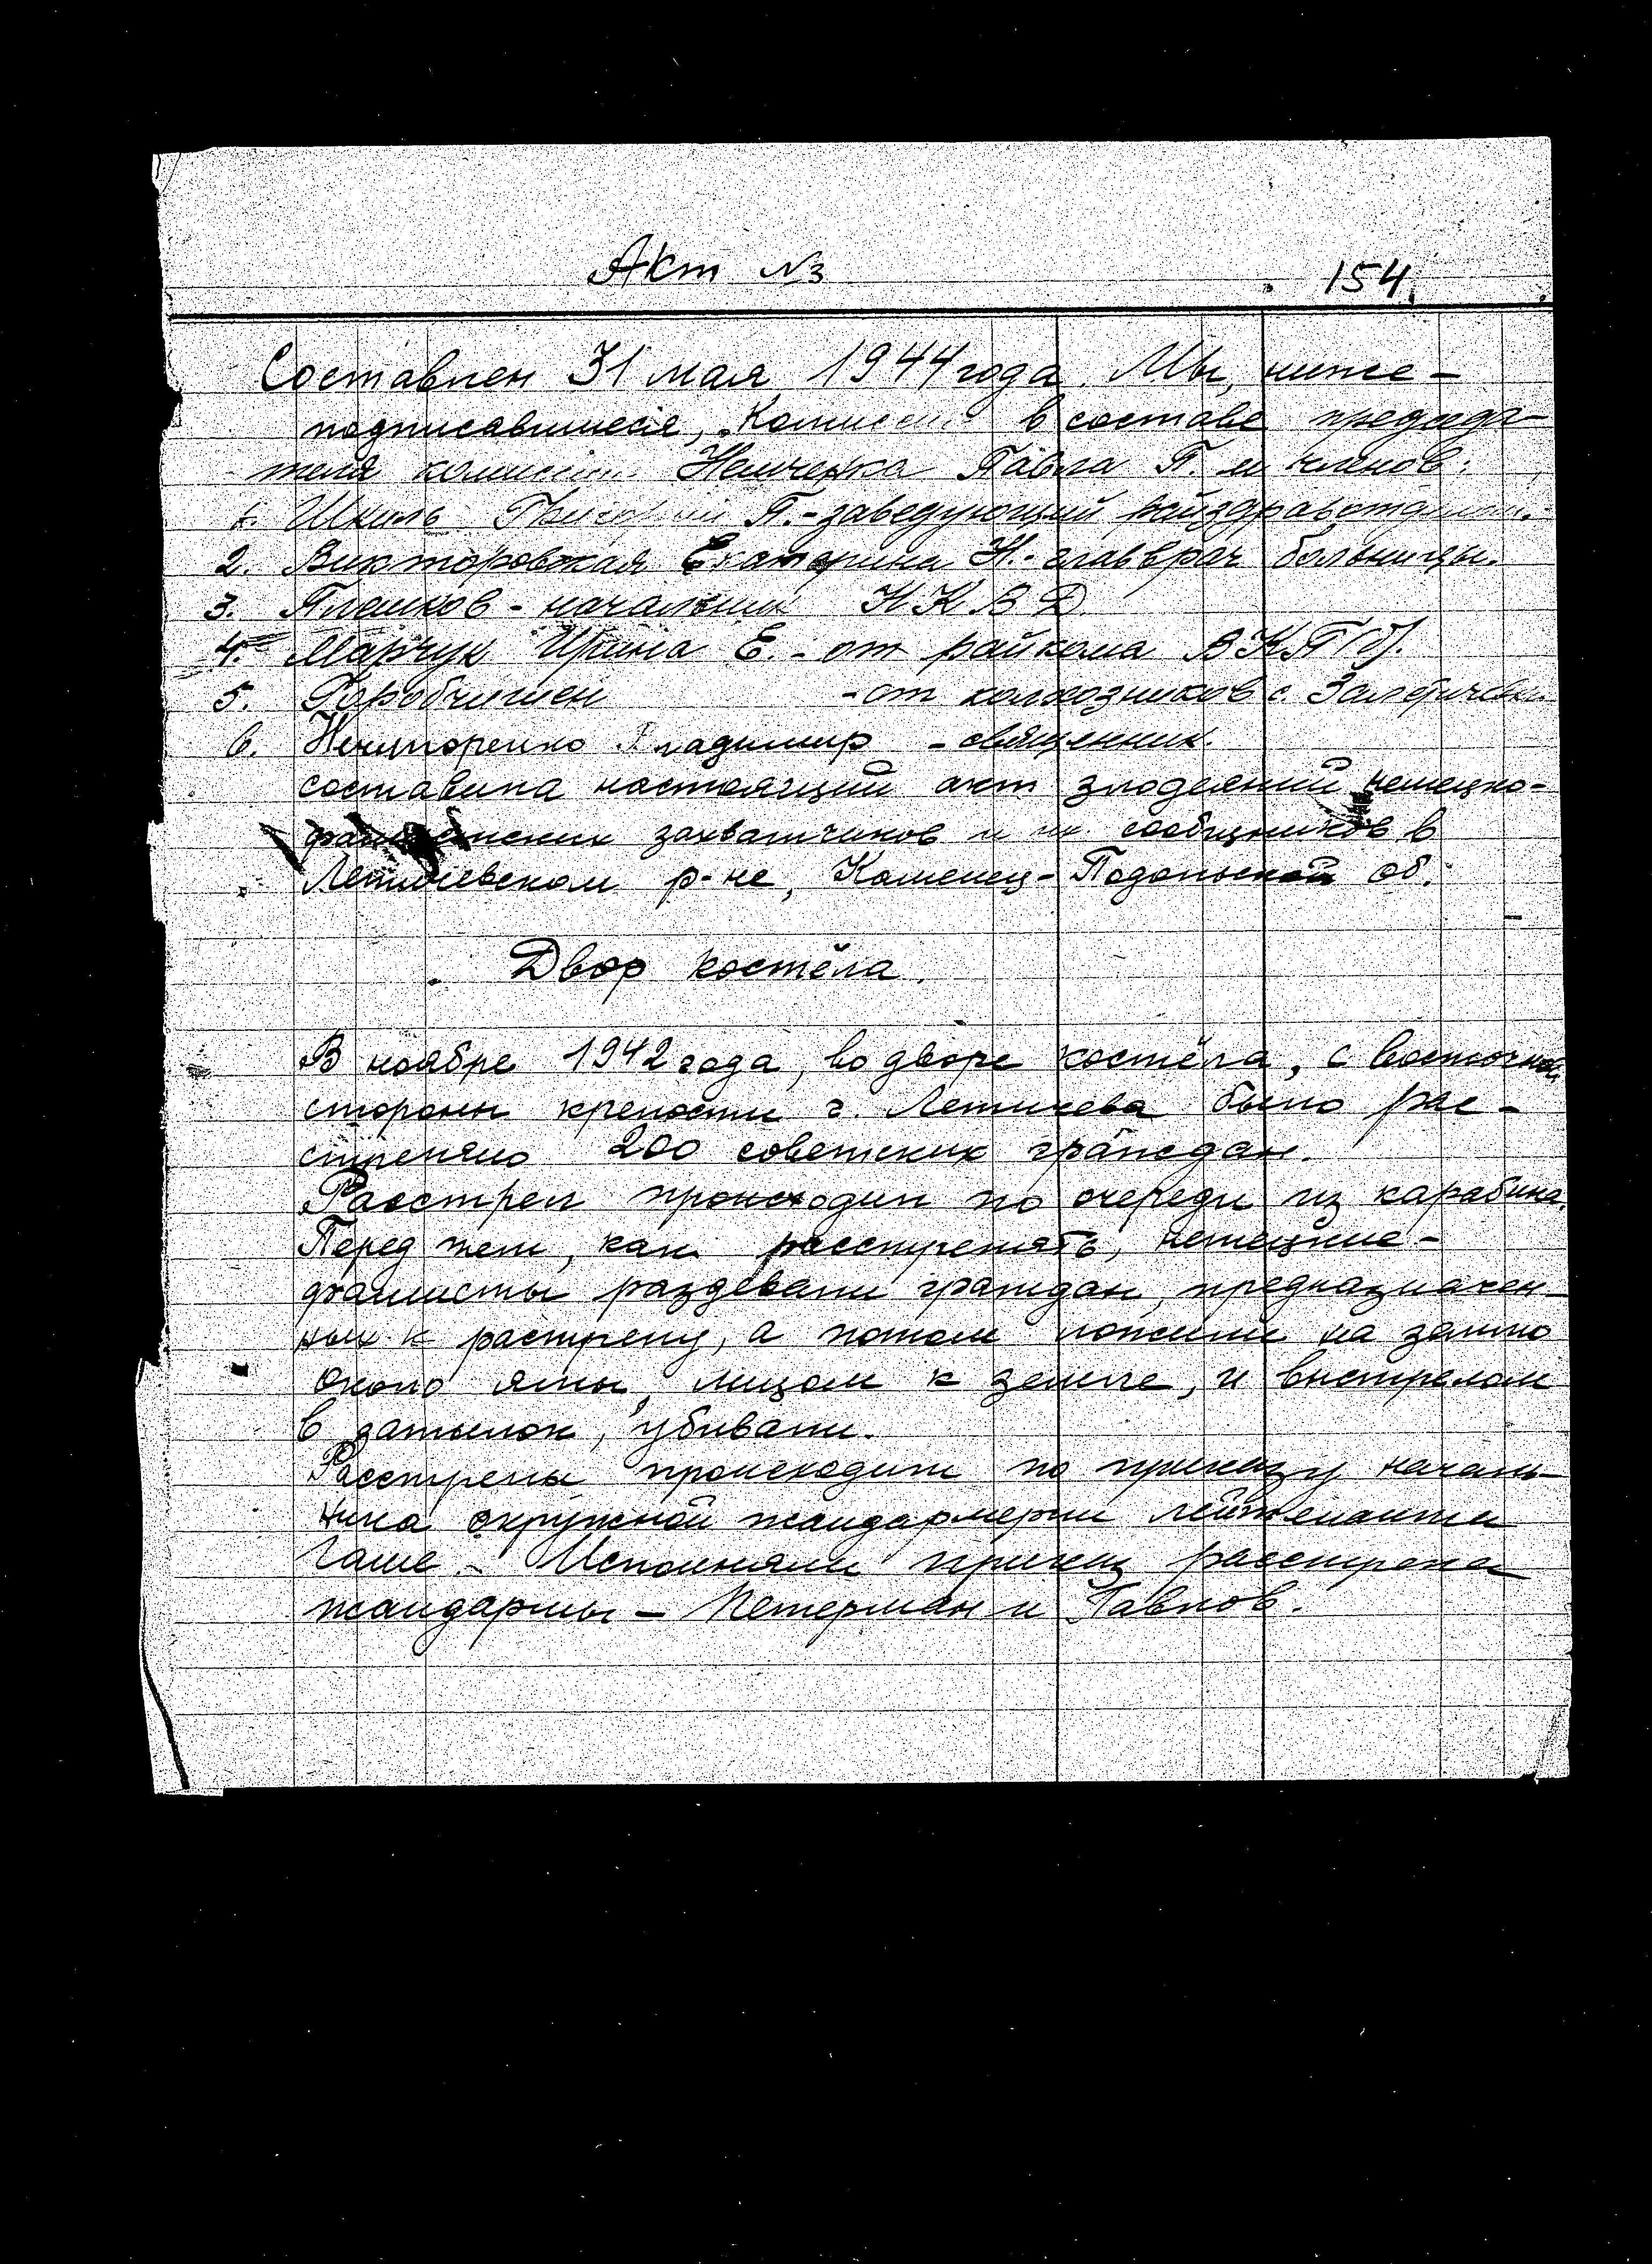 Акт №3
154
Составлен 31 мая 1944 года. Мы, ниже-
подписавшиеся, Комиссия в составе председа-
теля комиссии Немченка Павла П. и членов:
1. Шкиль Григорий П. - заведующий райздравотделом.
2. Викторовская Екатерина Н. - главврач больницы.
3. Плешков - начальник НКВД
4. Марчук Ирина Е. - от райкома ВКП(б).
5. Горобчишен - от колхозников с. Залетичевки
6. Нечипоренко Владимир - священник.
составила настоящий акт злодеяний немецко-
фашистских захватчиков и их сообщников в
Летичевском р-не, Каменец-Подольской об.
Двор костёла.
В ноябре 1942 года, во дворе костёла, с восточной
стороны крепости г. Летичева было рас-
стреляно 200 советских граждан.
Расстрел происходил по очереди из карабина.
Перед тем, как расстрелять, немецкие-
фашисты раздевали граждан, предназначен-
ных к растрелу, а потом ложили на землю
около ямы, лицом к земле, и выстрелом
в затылок, убивали.
Расстрелы происходили по приказу началь-
ника окружной жандармерии лейтенанта
Гаше. Исполняли приказ расстрела
жандармы - Петерман и Павлов.